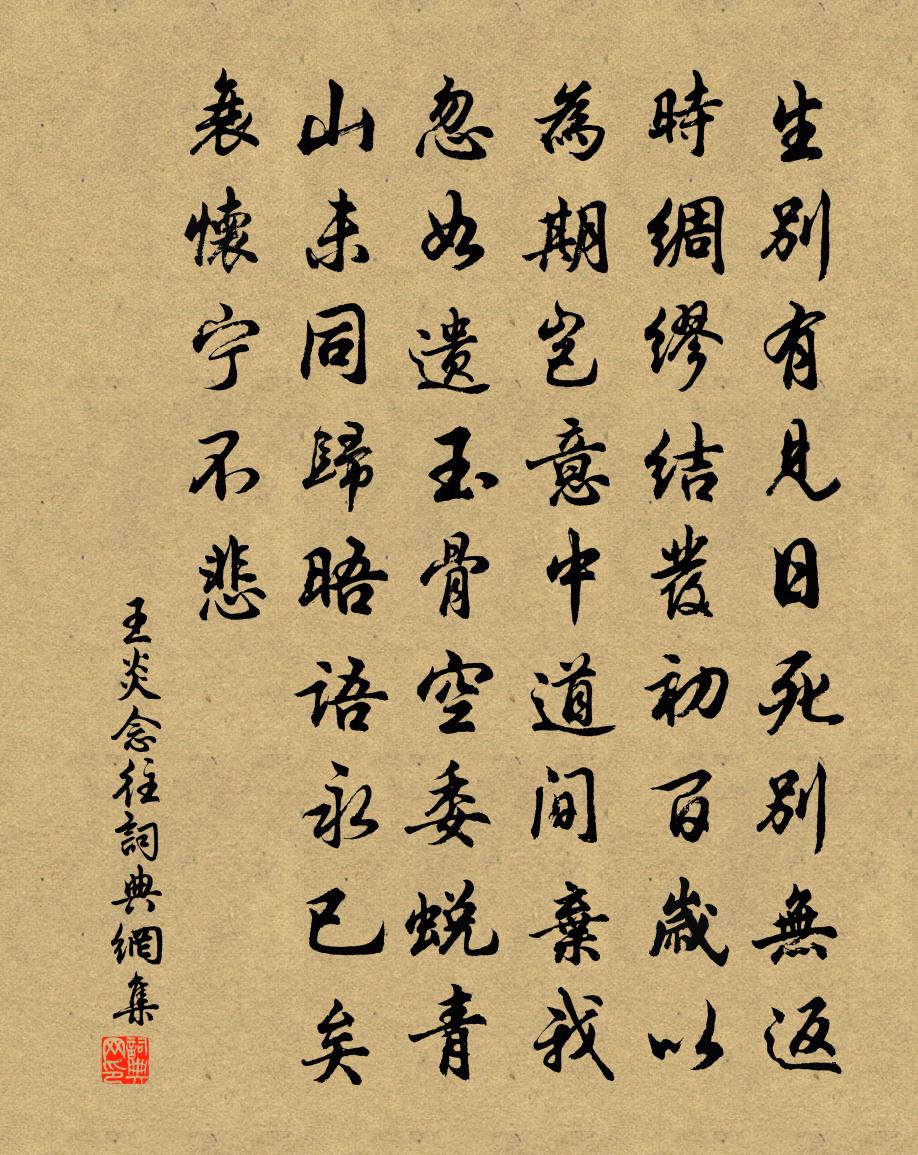 生別有見日死別無返
時綢繆結發初百歲以
為期豈意中道間棄我
忽如遺玉骨空委蛻青
山未同歸晤語永已矣
衰懷宁不悲
王炎念往詞典網集
詞典网印